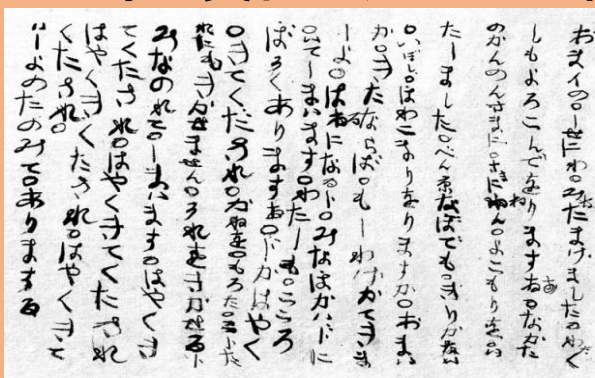 おまイの。しせにわ。みなたまけました。わたく
しもよろこんでをりまする。なかた
のかんのんさまに。さまにねん。よこもりをい
たしました。べん京なぼでも。きりかない
。いぼし。ほわこまりをりますか。おまい
か。きたならば。もしわけかてきま
しよ。はるになるト。みなほかいドに
いてしまいます。わたしも。こころ
ぼそくありまする。ドかはやく
。きてくだされ。かねを。もろた。こトた
れにもきかせません。それをきかせるト
みなのれて。しまいます。はやくき
てくたされ。はやくきてくたされ
はやくきてくたされ。はやくきて
くたされ。
いしよのたのみて。ありまする